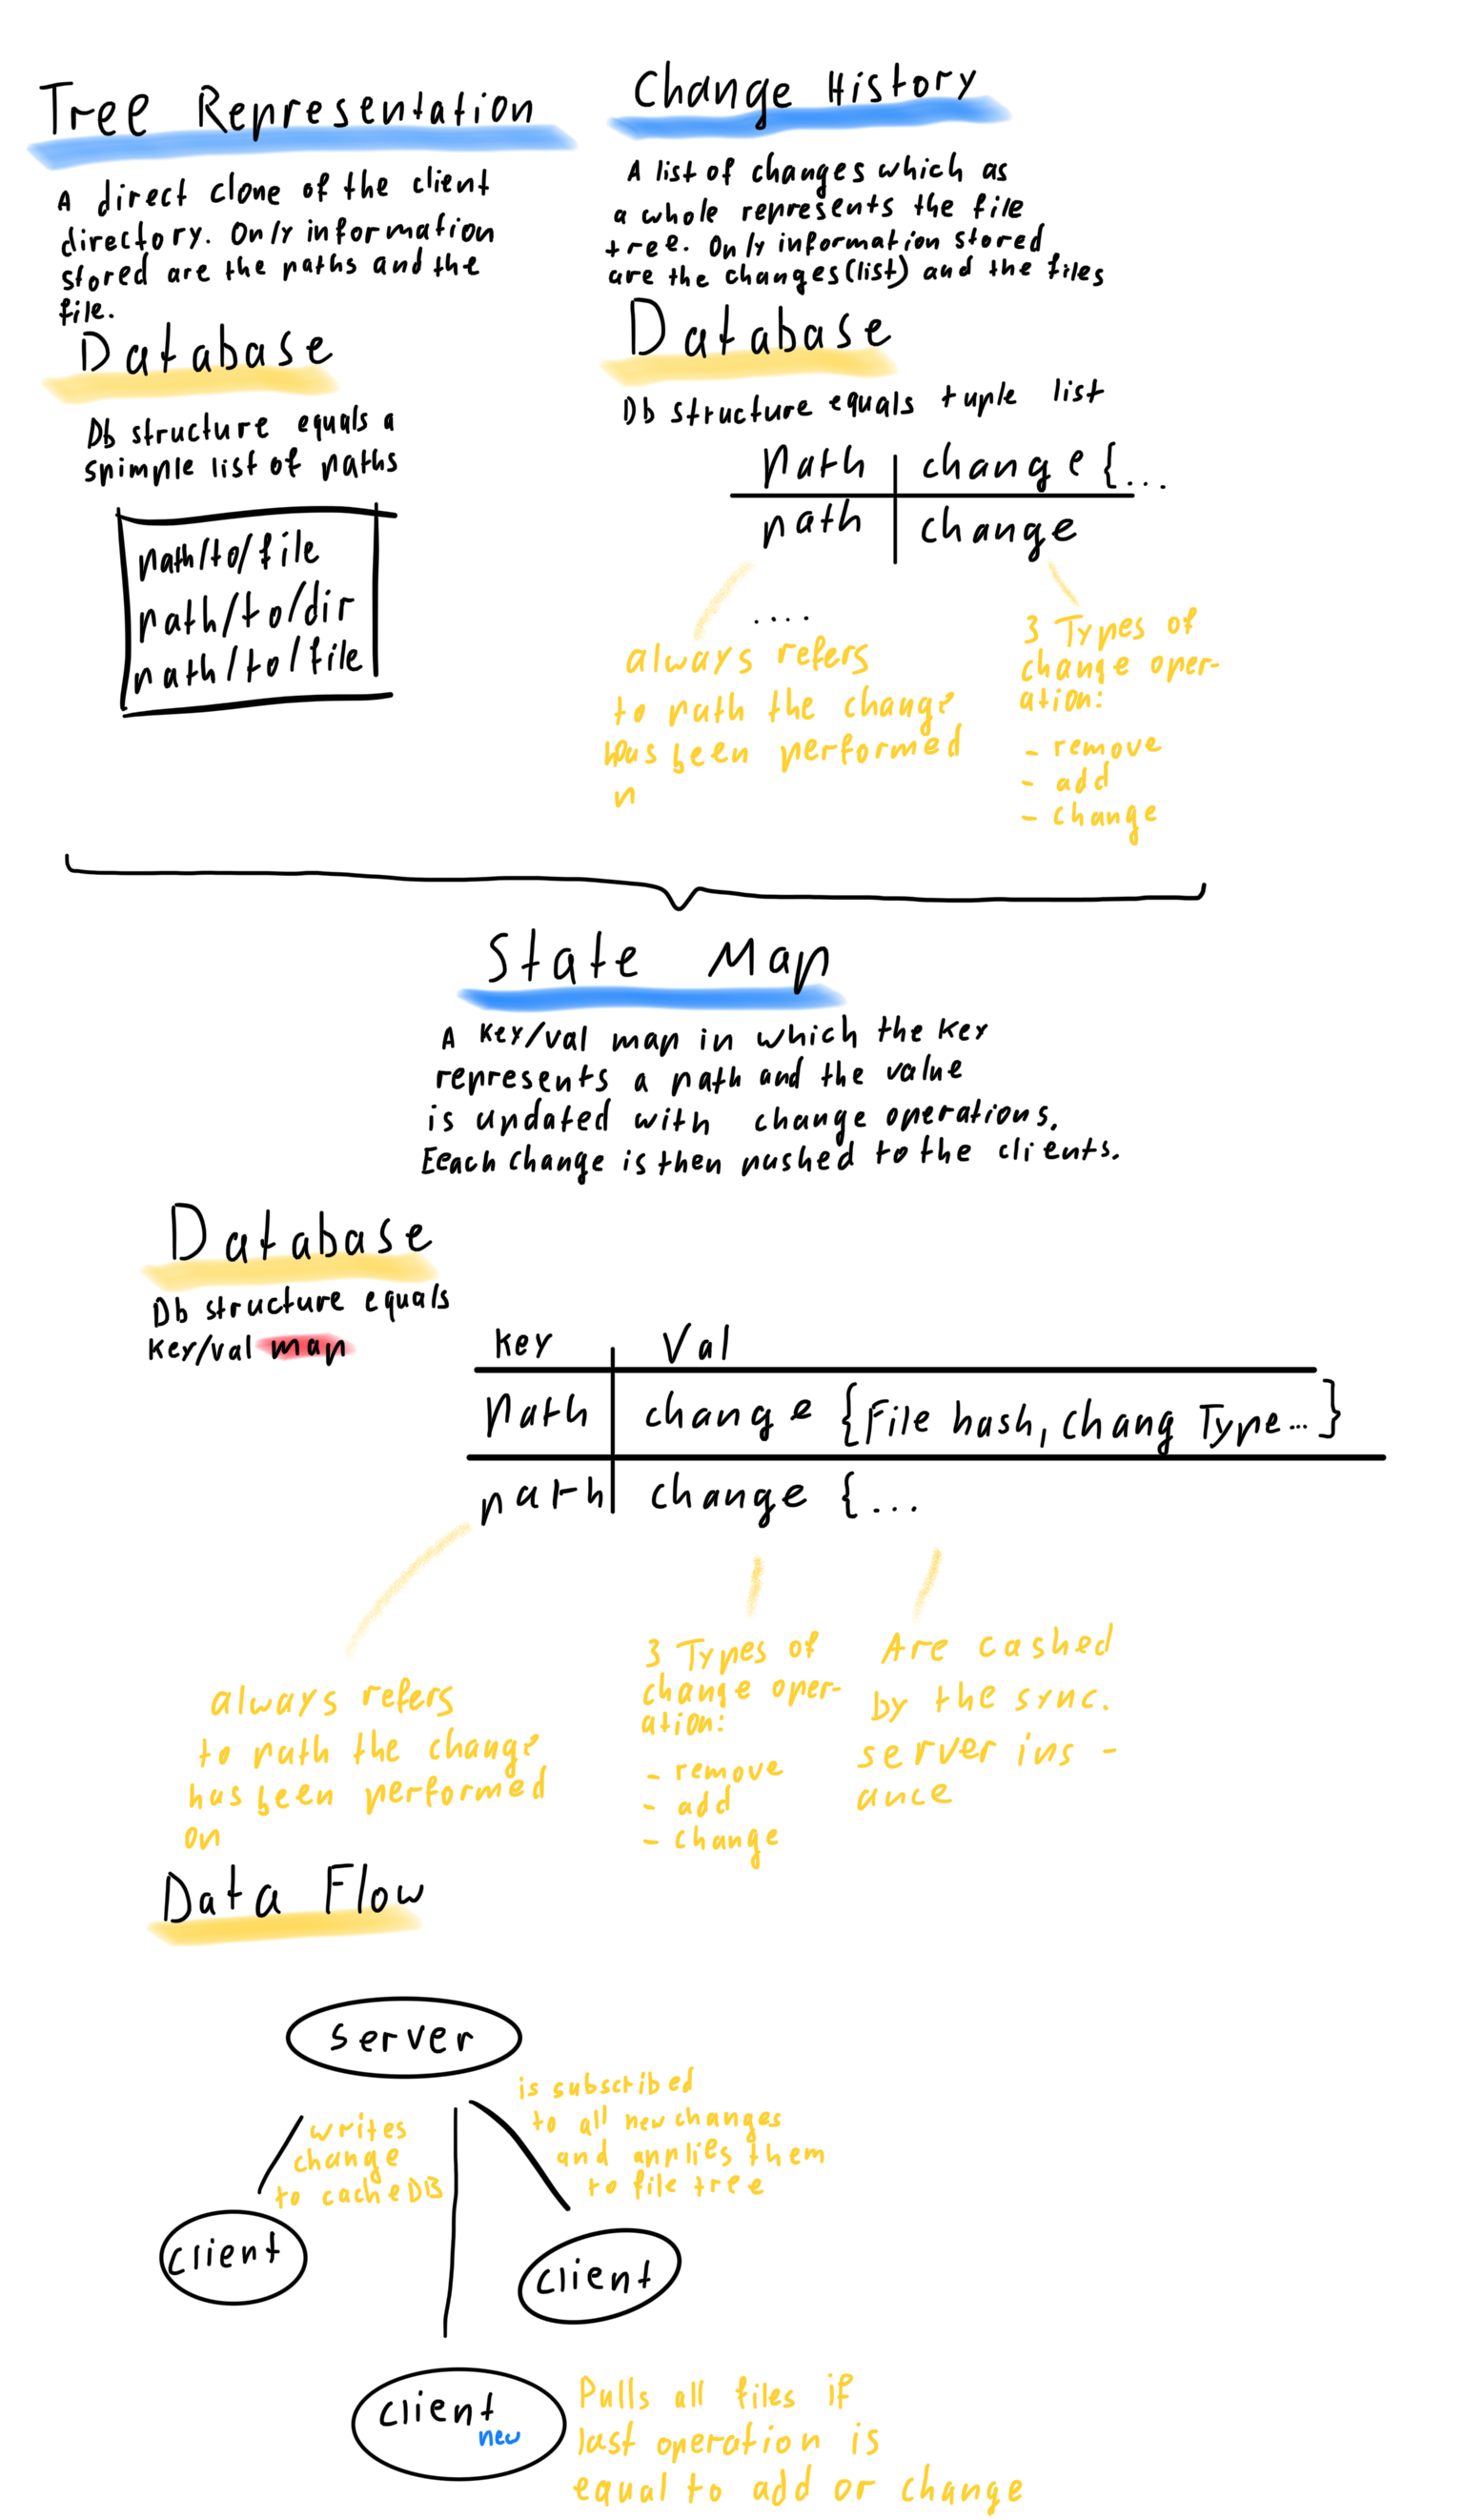 Tree Representation
A direct clone of the client
directory. Only information
stored are the paths and the
file.
Database
Db structure equals a
spimple list of paths
path/to/file
path/to/dir
path/to/file
Change History
A list of changes which as
a whole represents the file
tree. Only information stored
are the changes (list) and the files
Database
Db structure equals tuple list
Path change {...
path change
....
always refers
to path the change
has been performed
n
3 Types of
change oper-
ation:
- remove
- add
- change
State Map
A key/val map in which the key
represents a path and the value
is updated with change operations.
Eeach change is then pushed to the clients.
Database
Db structure equals
key/val map
key Val
Path change {File hash, chang Type...}
path change {...
always refers
to path the change
has been performed
on
3 Types of
change oper-
ation:
- remove
- add
- change
Are cashed
by the sync.
server ins-
ance
Data Flow
server
writes
change
to cacheDB
is subscribed
to all new changes
and applies them
to file tree
client
client
client
new
Pulls all files if
last operation is
equal to add or change